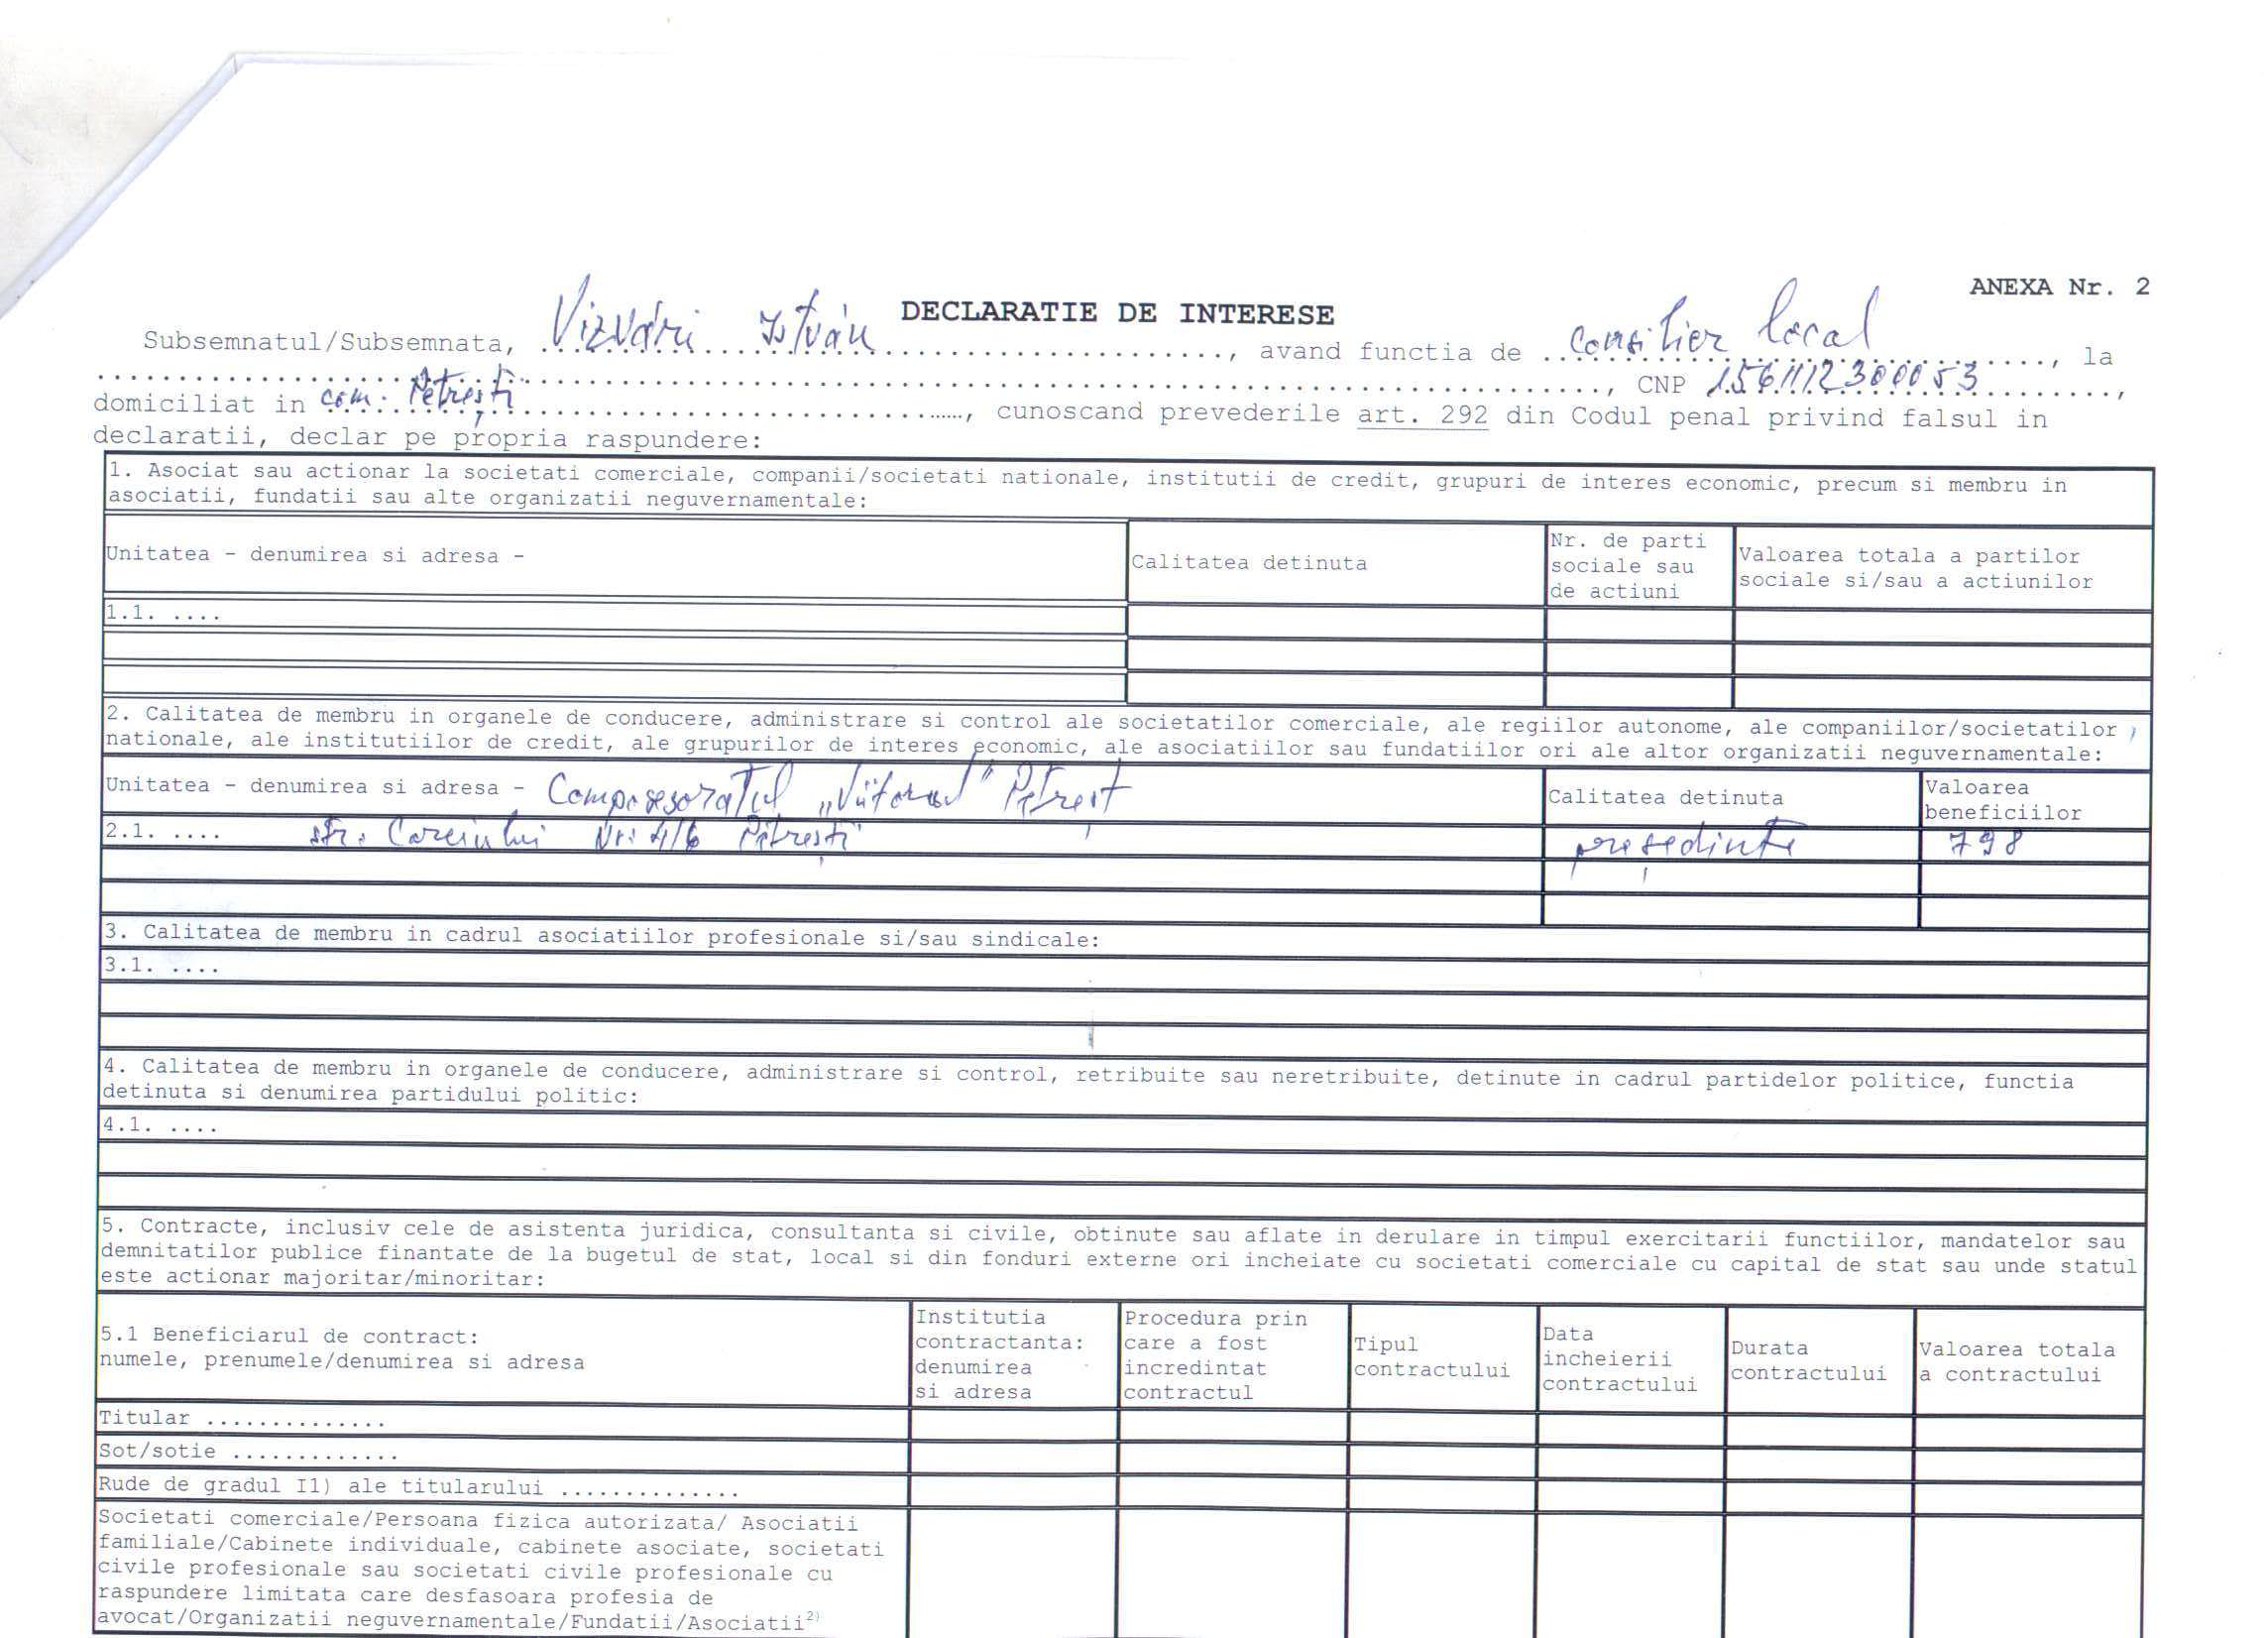 ANEXA Nr. 2
DECLARATIE DE INTERESE
Subsemnatul/Subsemnata, Vizvári István, avand functia de consilier local, la
CNP 1561112300053
domiciliat in com. Petrești, cunoscand prevederile art. 292 din Codul penal privind falsul in
declaratii, declar pe propria raspundere:
1. Asociat sau actionar la societati comerciale, companii/societati nationale, institutii de credit, grupuri de interes economic, precum si membru in
asociatii, fundatii sau alte organizatii neguvernamentale:
Unitatea - denumirea si adresa -
Calitatea detinuta
Nr. de parti
sociale sau
de actiuni
Valoarea totala a partilor
sociale si/sau a actiunilor
1.1. ....
2. Calitatea de membru in organele de conducere, administrare si control ale societatilor comerciale, ale regiilor autonome, ale companiilor/societatilor
nationale, ale institutiilor de credit, ale grupurilor de interes economic, ale asociatiilor sau fundatiilor ori ale altor organizatii neguvernamentale:
Unitatea - denumirea si adresa - Composesoratul „Viitorul" Petrești
Calitatea detinuta
Valoarea
beneficiilor
2.1. .... str. Careiului Nr: 4/6 Petrești
președinte
798
3. Calitatea de membru in cadrul asociatiilor profesionale si/sau sindicale:
3.1. ....
4. Calitatea de membru in organele de conducere, administrare si control, retribuite sau neretribuite, detinute in cadrul partidelor politice, functia
detinuta si denumirea partidului politic:
4.1. ....
5. Contracte, inclusiv cele de asistenta juridica, consultanta si civile, obtinute sau aflate in derulare in timpul exercitarii functiilor, mandatelor sau
demnitatilor publice finantate de la bugetul de stat, local si din fonduri externe ori incheiate cu societati comerciale cu capital de stat sau unde statul
este actionar majoritar/minoritar:
5.1 Beneficiarul de contract:
numele, prenumele/denumirea si adresa
Institutia
contractanta:
denumirea
si adresa
Procedura prin
care a fost
incredintat
contractul
Tipul
contractului
Data
incheierii
contractului
Durata
contractului
Valoarea totala
a contractului
Titular ..............
Sot/sotie .............
Rude de gradul I1) ale titularului ..............
Societati comerciale/Persoana fizica autorizata/ Asociatii
familiale/Cabinete individuale, cabinete asociate, societati
civile profesionale sau societati civile profesionale cu
raspundere limitata care desfasoara profesia de
avocat/Organizatii neguvernamentale/Fundatii/Asociatii2)